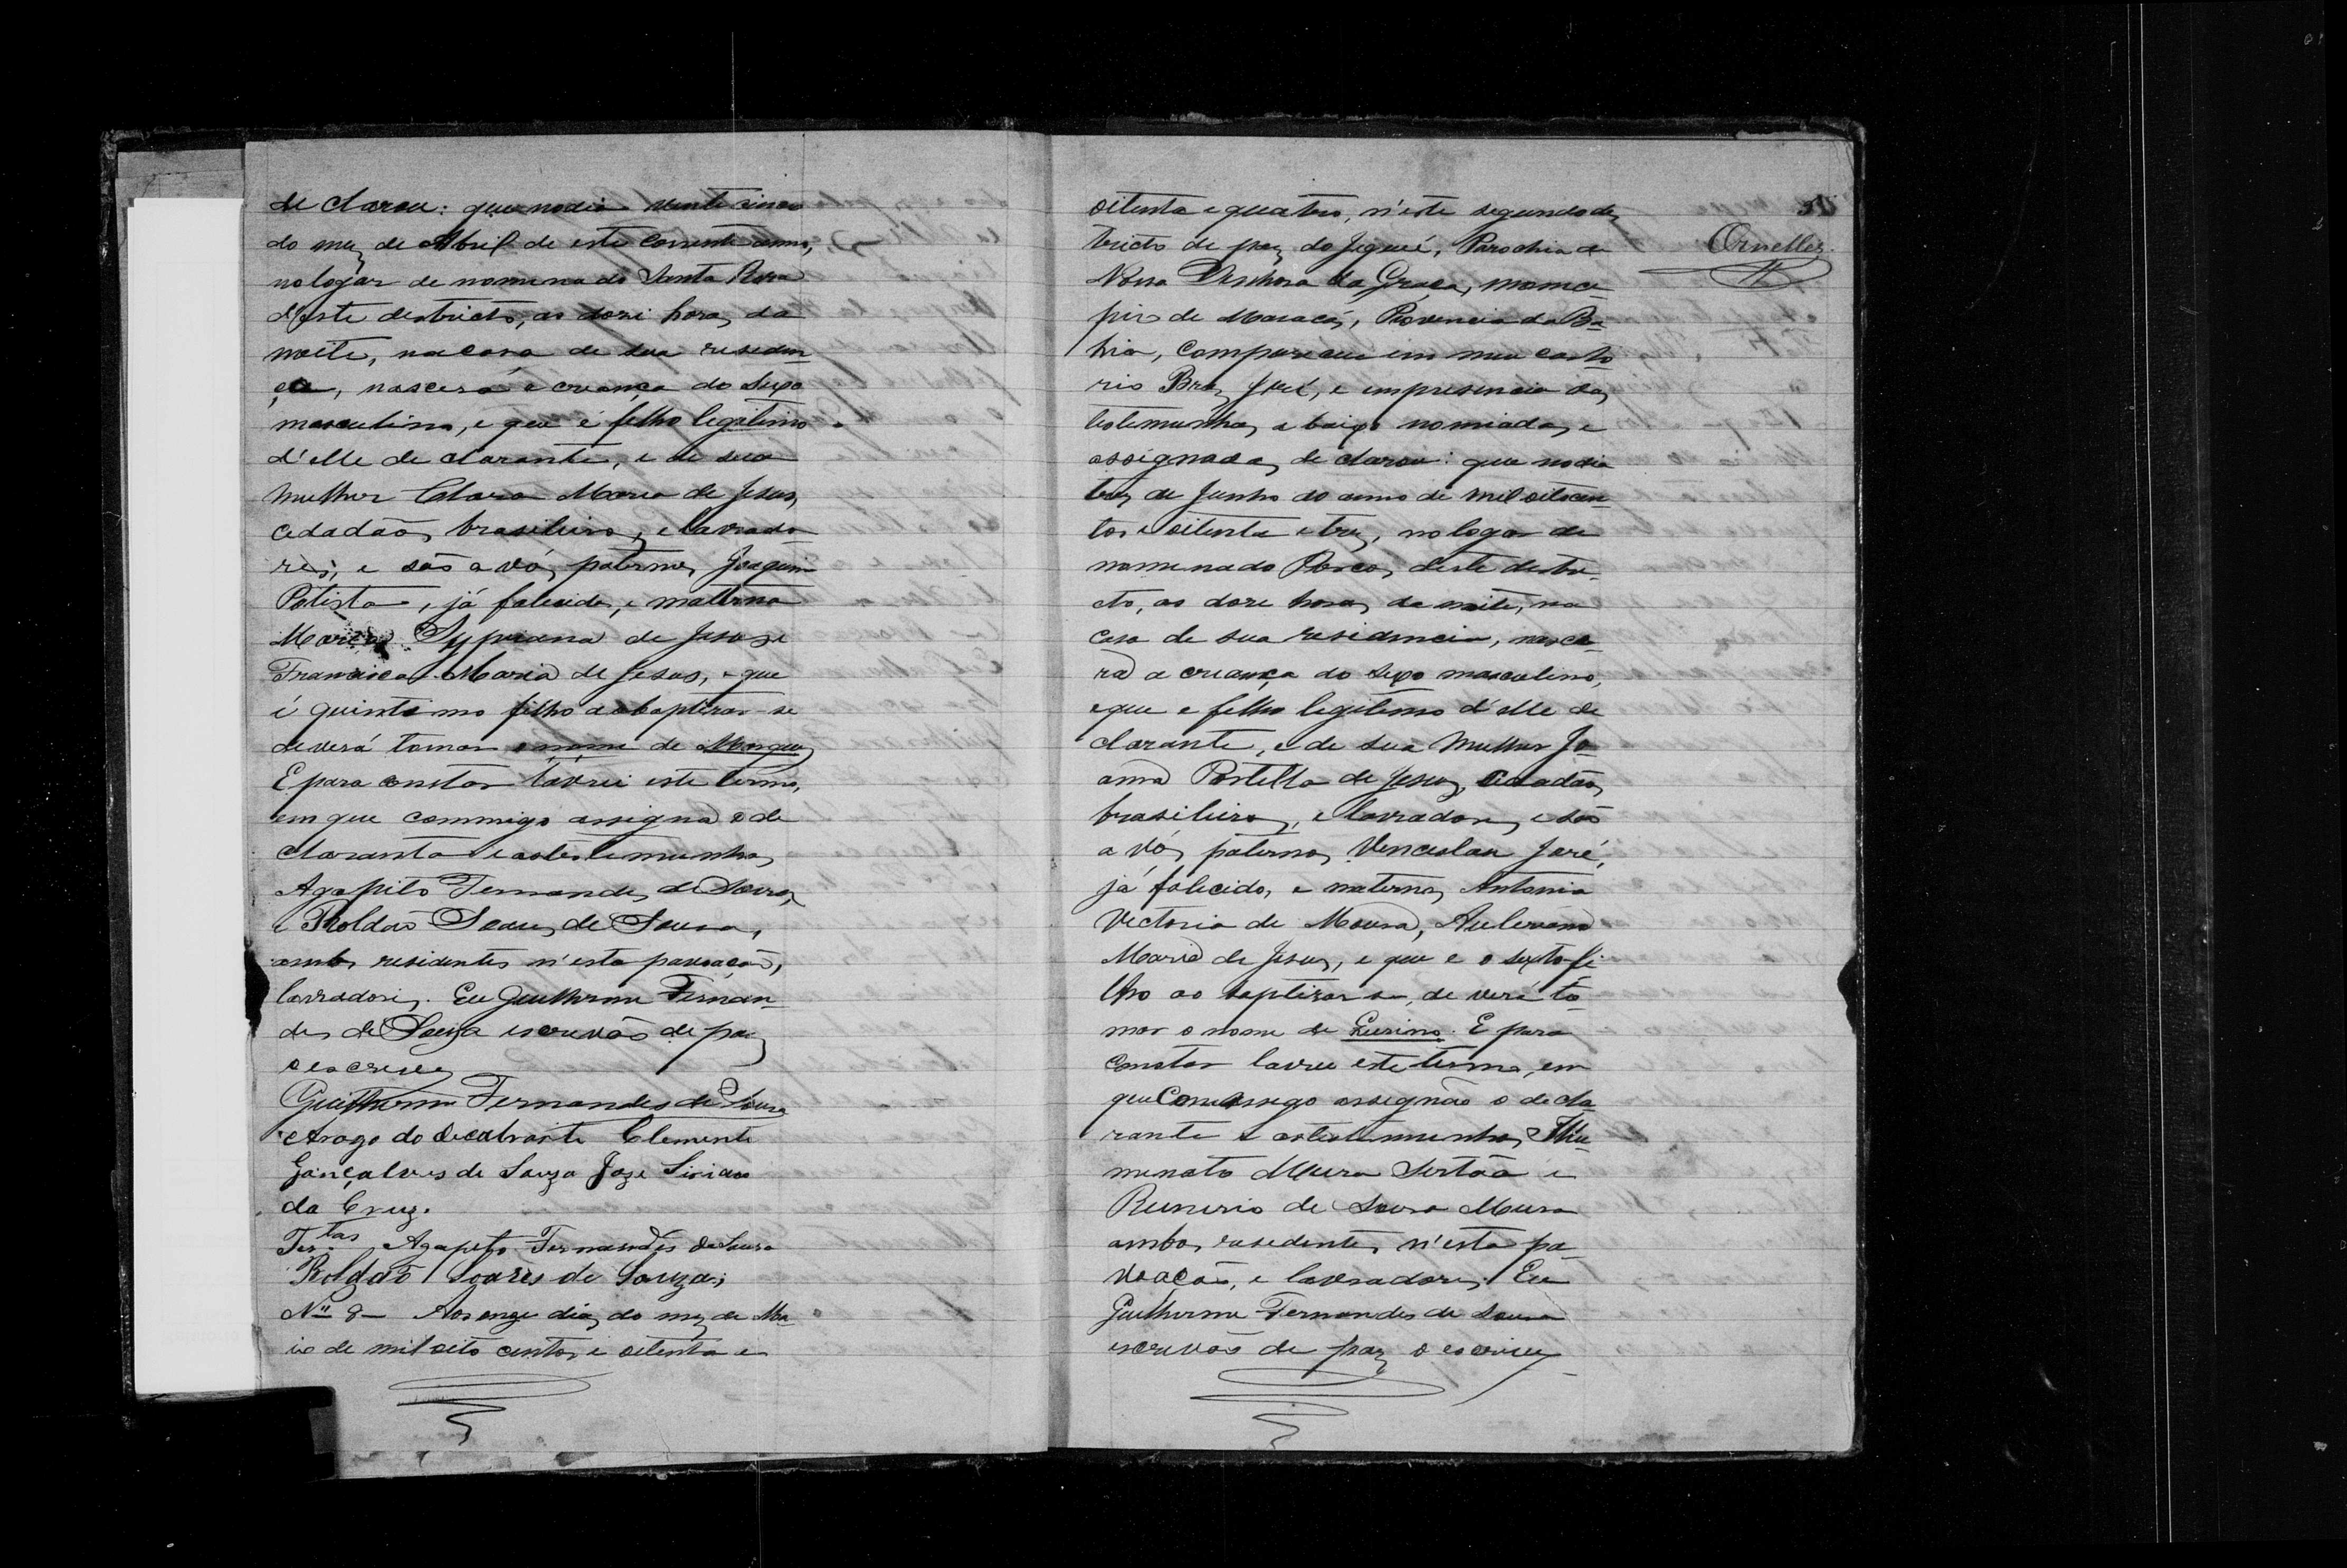 de clarou: que no dia vente cinco
do mez de Abril de este corrente anno,
no logar de nomena do Santa Rosa
d'este destricto, as dose horas da
noite, na casa de sua reseden
cia, nascera a creança do sexo
masculino, e que é filho legitimo
d'elle de clarante, e de sua
mulher Clara Maria de Jesus,
cidadãos brasileiros, e lavrado
res, e são a vós paternos Joaquim
Batista, já falecido, e materna
Maria Sypriana de Jesus e
Francisca Maria de Jesus, e que
é quinto filho ao baptizar-se
deverá tomar o nome de Marques
E para constar lavrei este termo,
em que commigo assigna o de
clarante e as testemunhas
Agapito Fernandes de Souza,
e Roldão Soares de Sousa,
ambos residentes n'esta povoação,
lavradores. Eu Guilherme Fernan
des de Souza escrevão de paz
o escrevy
Guilherme Fernandes de Souza
Arogo do decalrante Clemente
Gonçalves de Souza Joze Siriaco
da Cruz.
Tes.tas Agapito Fernandes de Souza
Roldão Soares de Souza
Nº 8 — Aos onze dias do mez de Ma
io de mil oito centos e oitenta e
5
Ornellas
oitenta e quatro, n'este segundo des
tricto de paz do Jequié, Parochia de
Nossa Senhora da Graça, monici
pio de Maracás, Provencia da Ba
hia, compareceu em meu carto
rio Braz José, e empresencia das
testemunhas a baixo nomiadas e
assignadas de clarou: que no dia
trez de Junho do anno de mil oitocen
tos e oitenta e trez, no logar de
nomenado Porcos, deste destri
cto, as doze horas da noite, na
casa de sua residencia, nasce
ra a creança do sexo masculino,
e que e filho legitimo d'elle de
clarante, e de sua mulher Jo
anna Portella de Jesus, cidadãos
brasileiros, e lavradores, e são
a vós paternos Venceslau José,
já falecido, e maternos Antonia
Victoria de Moura,
Maria de Jesus, e que e o sexto fi
lho ao baptizar-se, de verá to
mar o nome de . E para
constar lavrei este termo, em
que Commigo assignão o decla
rante e as testemunhas Illu
menato Sertão e
de Souza Moura
ambos resedentes n'esta po
voação, e lavradores. Eu
Guilherme Fernandes de Souza
escrevão de paz o escrevy